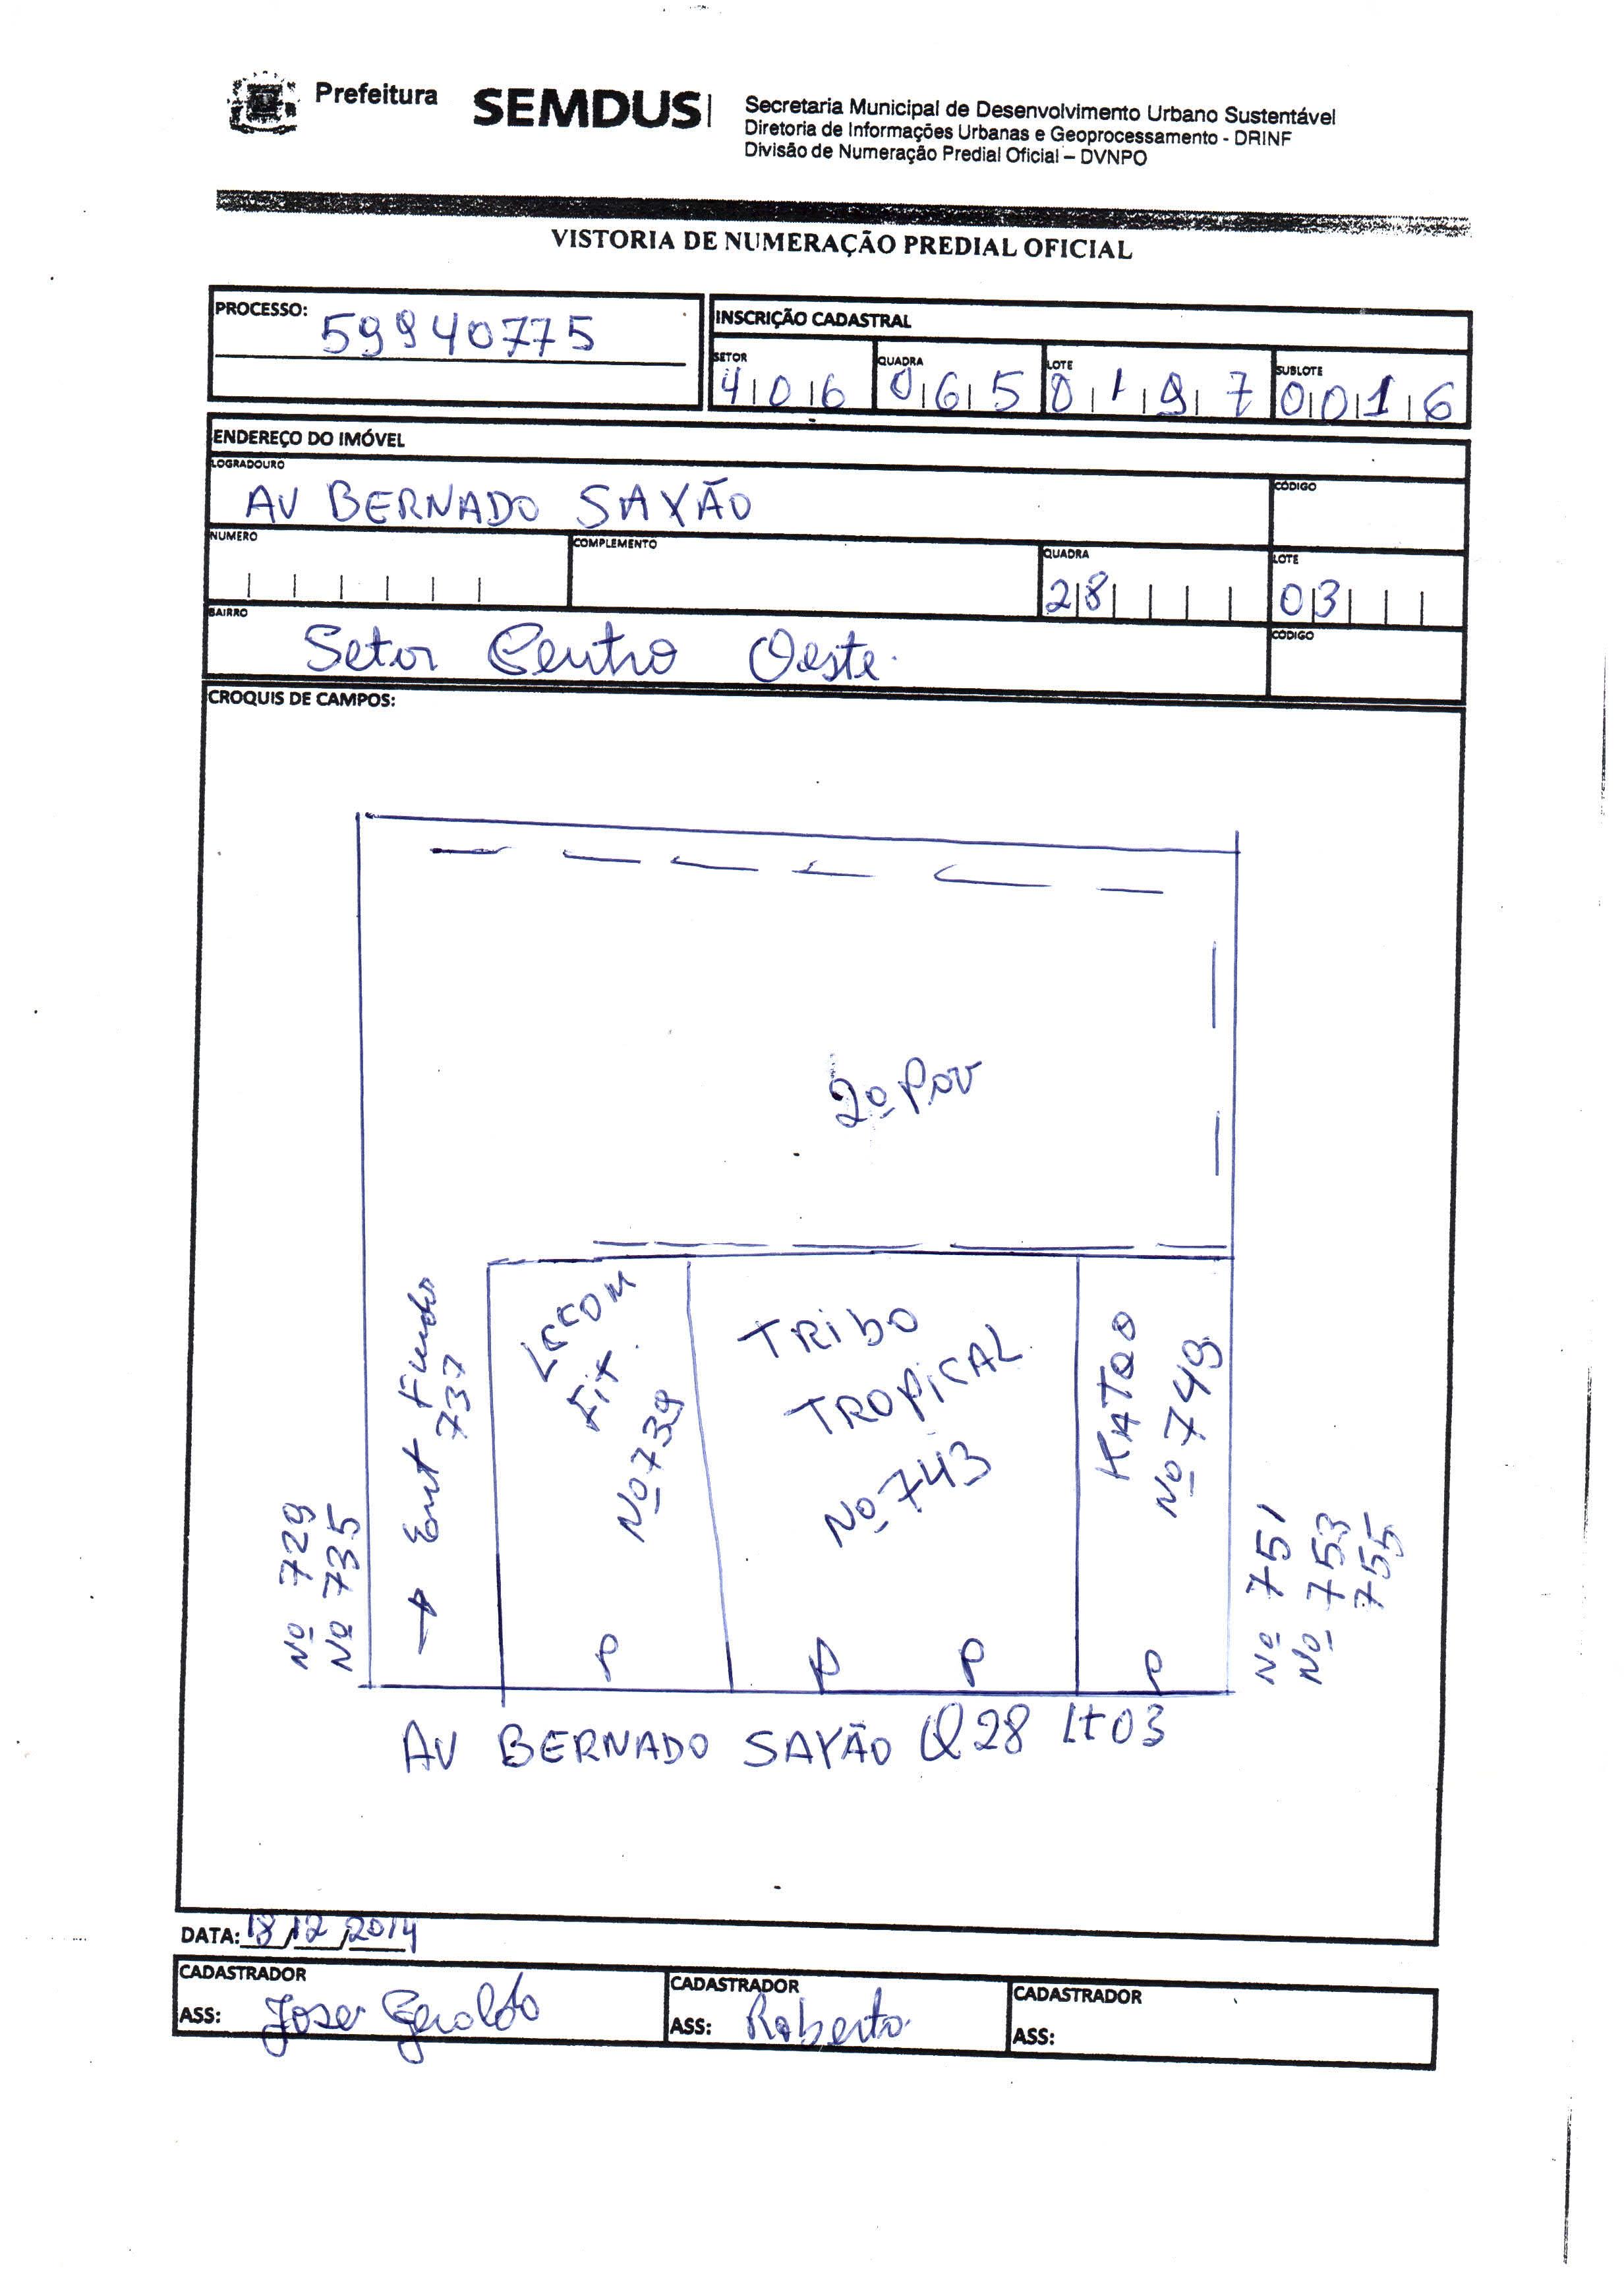 Prefeitura
SEMDUS
Secretaria Municipal de Desenvolvimento Urbano Sustentável
Diretoria de Informações Urbanas e Geoprocessamento - DRINF
Divisão de Numeração Predial Oficial – DVNPO
VISTORIA DE NUMERAÇÃO PREDIAL OFICIAL
PROCESSO: 59940775
INSCRIÇÃO CADASTRAL
SETOR QUADRA LOTE SUBLOTE
406 065 0197 0016
ENDEREÇO DO IMÓVEL
LOGRADOURO CÓDIGO
AV BERNADO SAYÃO
NUMERO COMPLEMENTO QUADRA LOTE
28 03
BAIRRO CÓDIGO
Setor Centro Oeste
CROQUIS DE CAMPOS:
2º Pav
Nº 729
Nº 735
Ent Fundo
737
FIT
Nº 739
TRIBO
TROPICAL
Nº 743
KATOO
Nº 749
Nº 751
Nº 753
755
P P P P
AV BERNADO SAYÃO Q28 Lt 03
DATA: 18/12/2014
CADASTRADOR CADASTRADOR CADASTRADOR
ASS: Jose Geraldo ASS: Roberto ASS: